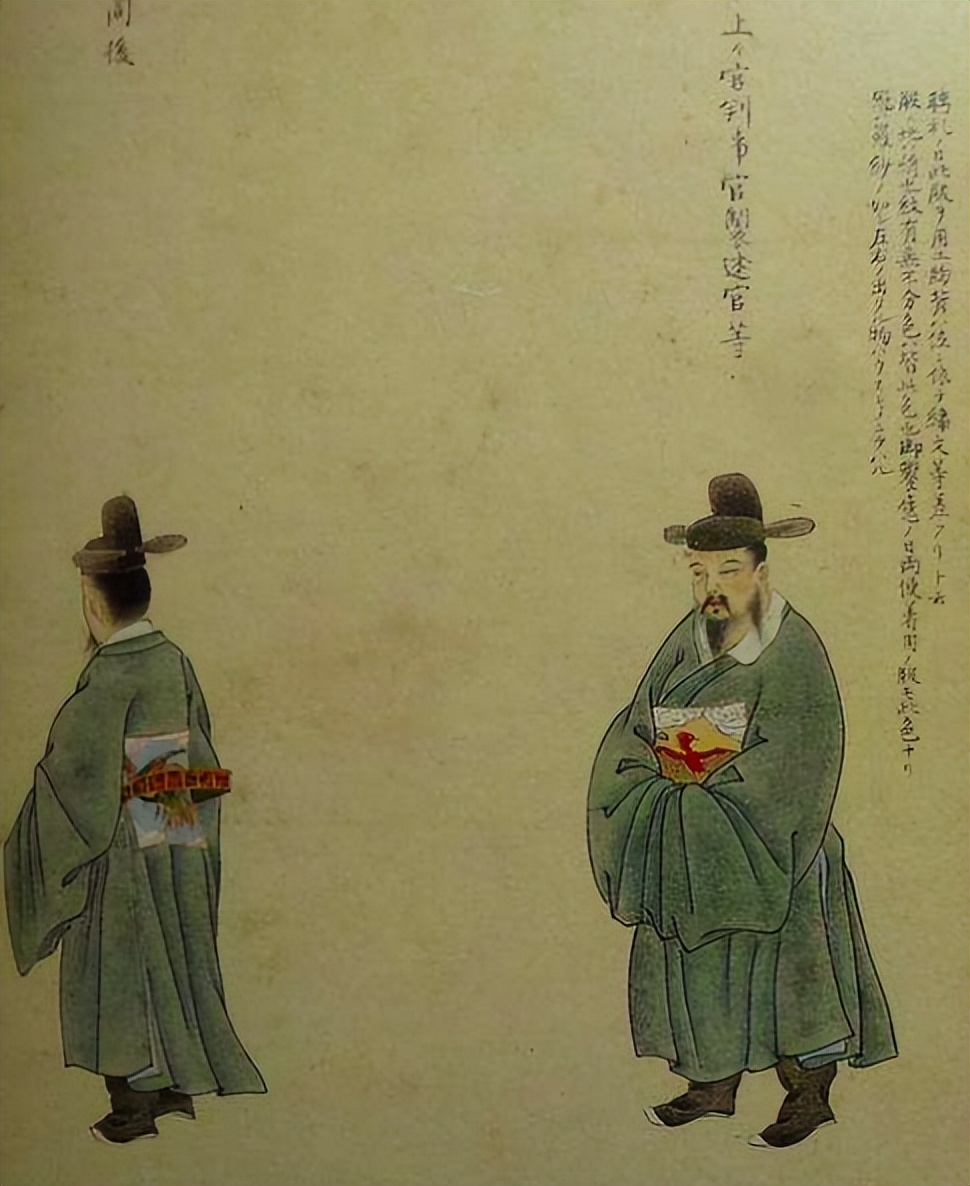 聘礼ノ日此服ヲ用ユ胸背ハ位ニ依テ繍文等差アリト云
服ノ地ハ紋有無不分色ハ皆此色也御饗應ノ日両使着用ノ服モ此色ナリ
紗ノ如左右ノ出タル物ハ
上々官判事官製述官等
同後